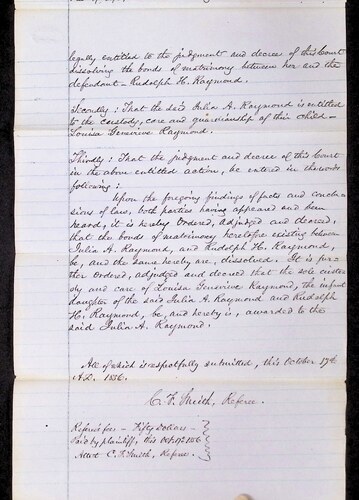 legally entitled to the judgment and decree of this Court
dissolving the bonds of matrimony between her and the
defendant - Rudolph H. Raymond.
Secondly: That the said Julia A. Raymond is entitled
to the custody, care and guardianship of their child -
Louisa Genevive Raymond.
Thirdly: That the judgment and decree of this Court
in the above entitled action, be entered in the words
following:
Upon the foregoing findings of facts and conclu-
sions of law, both parties having appeared and been
heard, it is hereby ordered, adjudged and decreed,
that the bonds of matrimony heretofore existing between
Julia A. Raymond, and Rudolph H. Raymond,
be, and the same hereby are, dissolved. It is fur-
ther ordered, adjudged and decreed that the sole custo-
dy and care of Louisa Genevive Raymond, the infant
daughter of the said Julia A. Raymond and Rudolph
H. Raymond, be, and hereby is, awarded to the
said Julia A. Raymond.
All of which is respectfully submitted, this October 17th
A.D. 1856.
C. F. Smith, Referee.
Referee's fees - Fifty Dollars -
Paid by plaintiff, this Oct 19th 1856
Attest C. F. Smith, Referee.